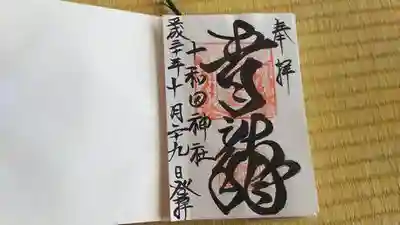 奉拝
青龍
十和田神社
平成三十年十月二十九日登拝